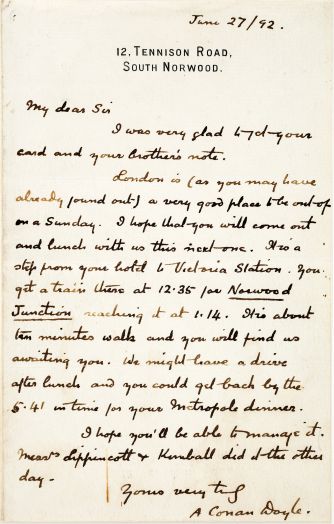 June 27/92.
12, TENNISON ROAD,
SOUTH NORWOOD.
My dear Sir
I was very glad to get your
card and your brother's note.
London is (as you may have
already found out) a very good place to be out of
on a Sunday. I hope that you will come out
and lunch with us this next one. It is a
step from your hotel to Victoria Station. You
get a train there at 12.35 for Norwood
Junction reaching it at 1.14. It is about
ten minutes walk and you will find us
awaiting you. We might have a drive
after lunch and you could get back by the
5.41 in time for your Metropole dinner.
I hope you'll be able to manage it.
Messrs Lippincott & Kimball did it the other
day.
Yours very truly
A Conan Doyle.